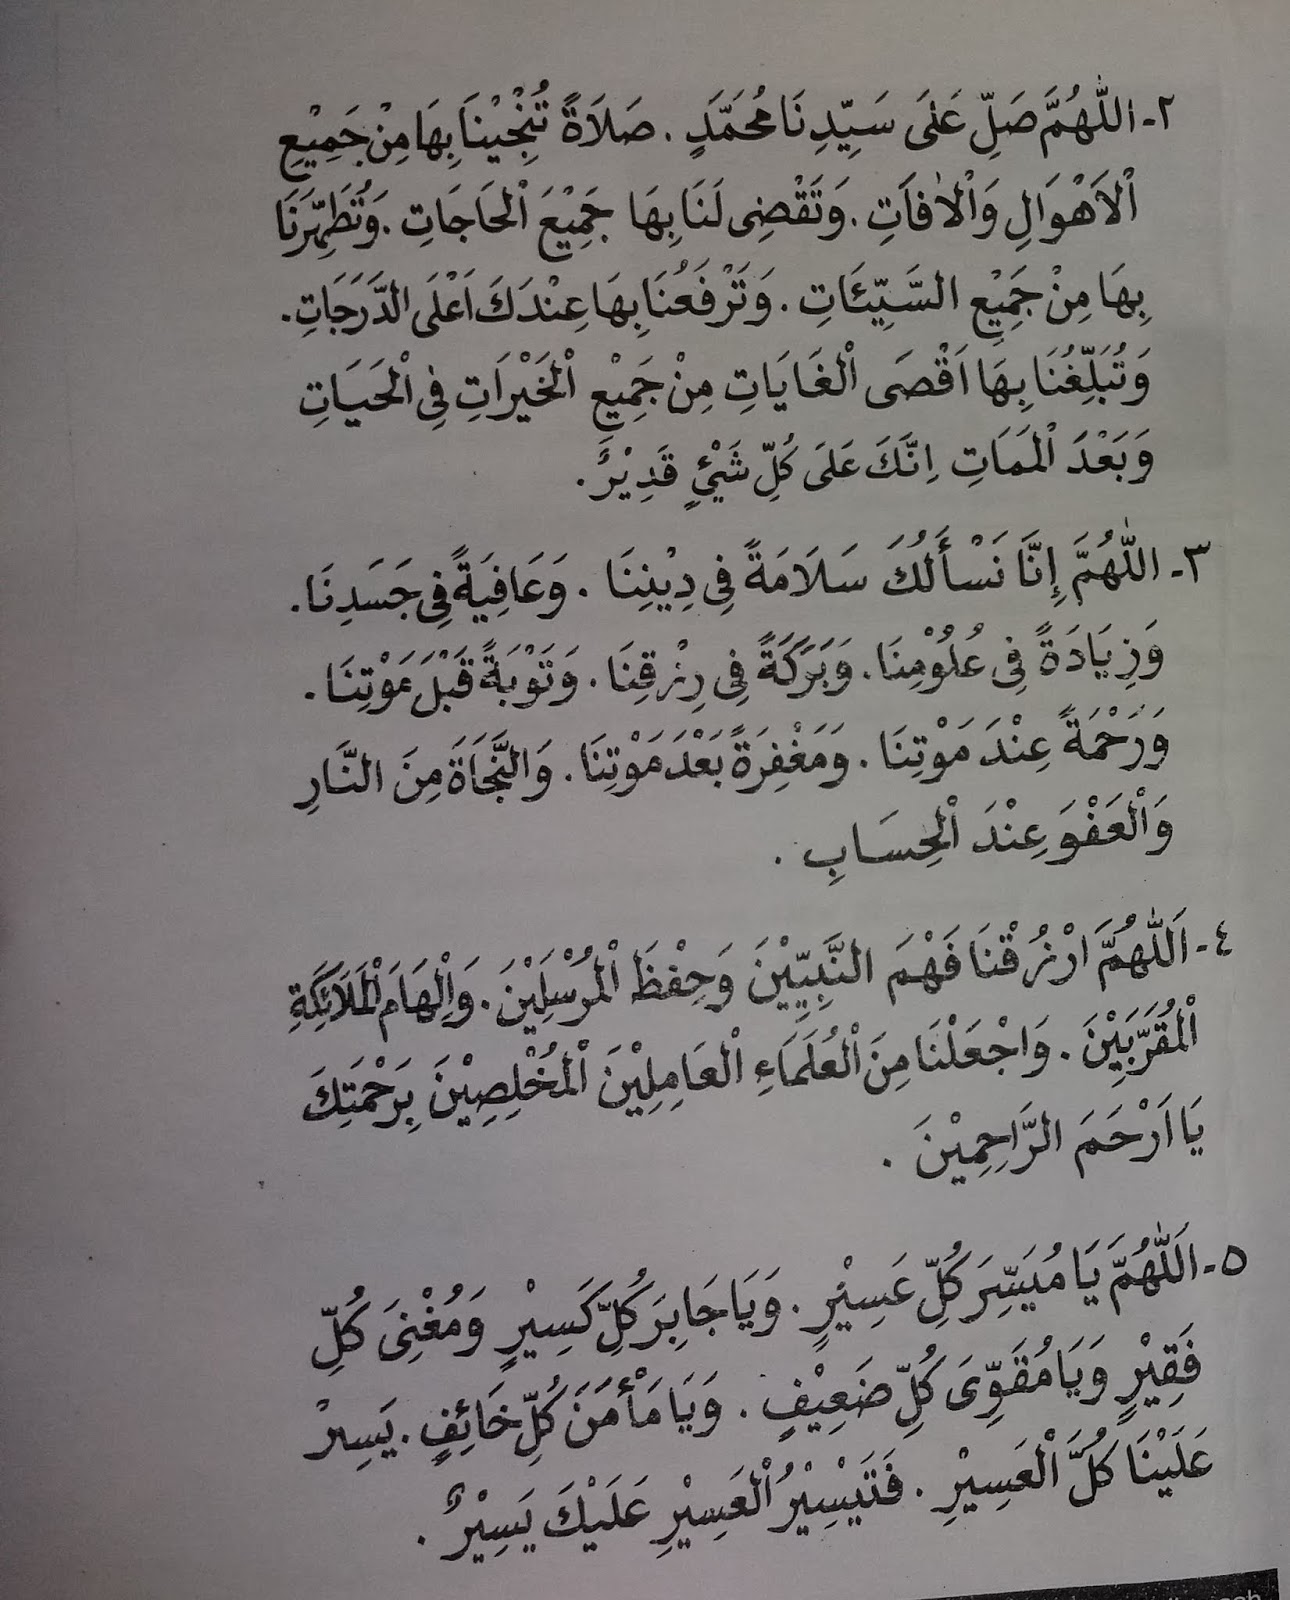 ٢- اَللّٰهُمَّ صَلِّ عَلَى سَيِّدِنَا مُحَمَّدٍ . صَلَاةً تُنْجِيْنَا بِهَا مِنْ جَمِيْعِ
اْلاَهْوَالِ وَاْلاٰفَاتِ . وَتَقْضِى لَنَا بِهَا جَمِيْعَ اْلحَاجَاتِ . وَتُطَهِّرَنَا
بِهَا مِنْ جَمِيْعِ السَّيِّئَاتِ . وَتَرْفَعُنَا بِهَا عِنْدَكَ اَعْلَى الدَّرَجَاتِ .
وَتُبَلِّغُنَا بِهَا اَقْصَى اْلغَايَاتِ مِنْ جَمِيْعِ اْلخَيْرَاتِ فِى اْلحَيَاتِ
وَبَعْدَ اْلمَمَاتِ اِنَّكَ عَلَى كُلِّ شَيْئٍ قَدِيْرٌ .
٣- اَللّٰهُمَّ إِنَّا نَسْأَلُكَ سَلَامَةً فِى دِيْنِنَا . وَعَافِيَةً فِى جَسَدِنَا .
وَزِيَادَةً فِى عُلُوْمِنَا . وَبَرَكَةً فِى رِزْقِنَا . وَتَوْبَةً قَبْلَ مَوْتِنَا .
وَرَحْمَةً عِنْدَ مَوْتِنَا . وَمَغْفِرَةً بَعْدَ مَوْتِنَا . وَالنَّجَاةَ مِنَ النَّارِ
وَاْلعَفْوَ عِنْدَ اْلحِسَابِ .
٤- اَللّٰهُمَّ ارْزُقْنَا فَهْمَ النَّبِيِّيْنَ وَحِفْظَ اْلمُرْسَلِيْنَ . وَاِلْهَامَ اْلمَلَائِكَةِ
اْلمُقَرَّبِيْنَ . وَاجْعَلْنَا مِنَ اْلعُلَمَاءِ اْلعَامِلِيْنَ اْلمُخْلِصِيْنَ بِرَحْمَتِكَ
يَا اَرْحَمَ الرَّاحِمِيْنَ .
٥- اَللّٰهُمَّ يَا مُيَسِّرَ كُلِّ عَسِيْرٍ . وَيَا جَابِرَ كُلِّ كَسِيْرٍ وَمُغْنِىَ كُلِّ
فَقِيْرٍ وَيَا مُقَوِّىَ كُلِّ ضَعِيْفٍ . وَيَا مَأْمَنَ كُلِّ خَائِفٍ . يَسِرْ
عَلَيْنَا كُلَّ اْلعَسِيْرِ . فَتَيْسِيْرُ اْلعَسِيْرِ عَلَيْكَ يَسِيْرٌ .